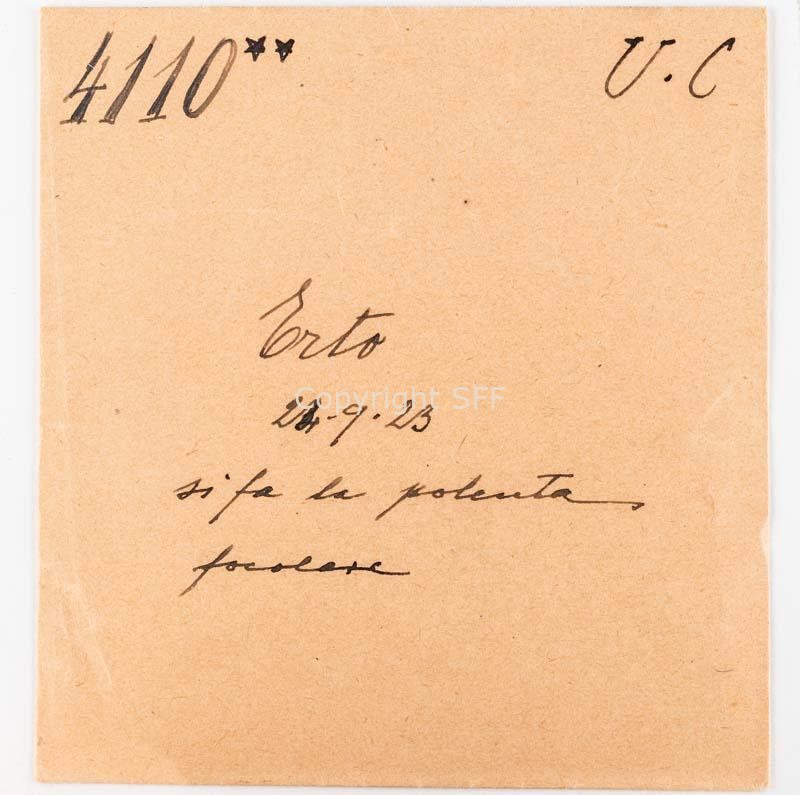 4110** U.C
Erto
Copyright SFF
24-9-23
si fa la polenta
focolare